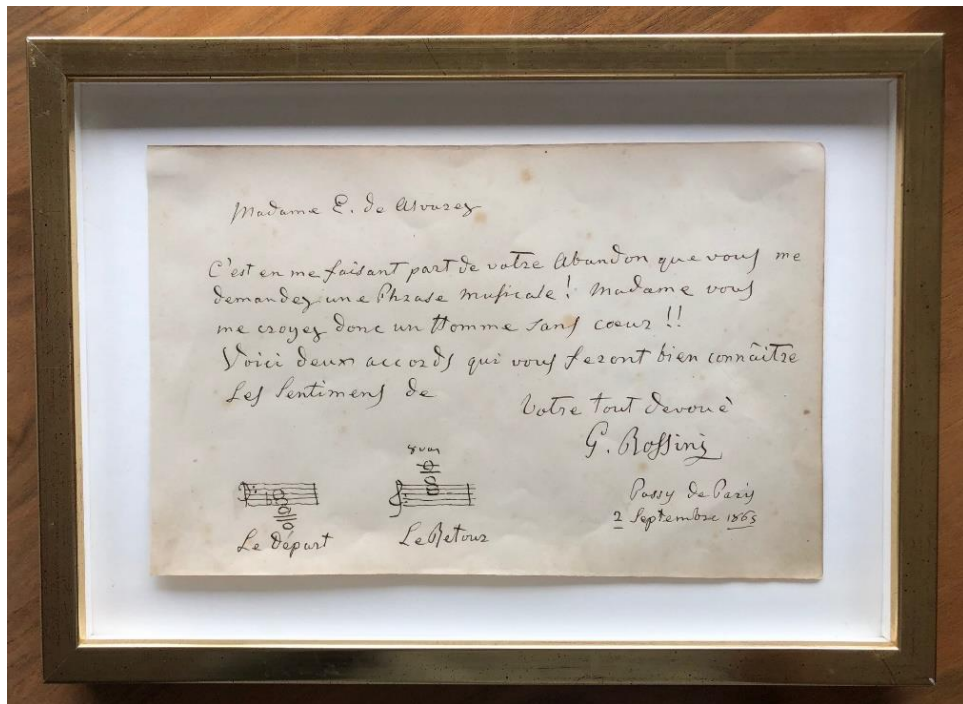 Madame E. de Alvarez
C'est en me faisant part de votre Abandon que vous me
demandez une Phrase musicale! Madame vous
me croyez donc un Homme sans coeur !!
Voici deux accords qui vous feront bien connâitre
Les Sentimens de
Votre tout devoué
G. Rossini
8va
Le Départ
Le Retour
Passy de Paris
2 Septembre 1865